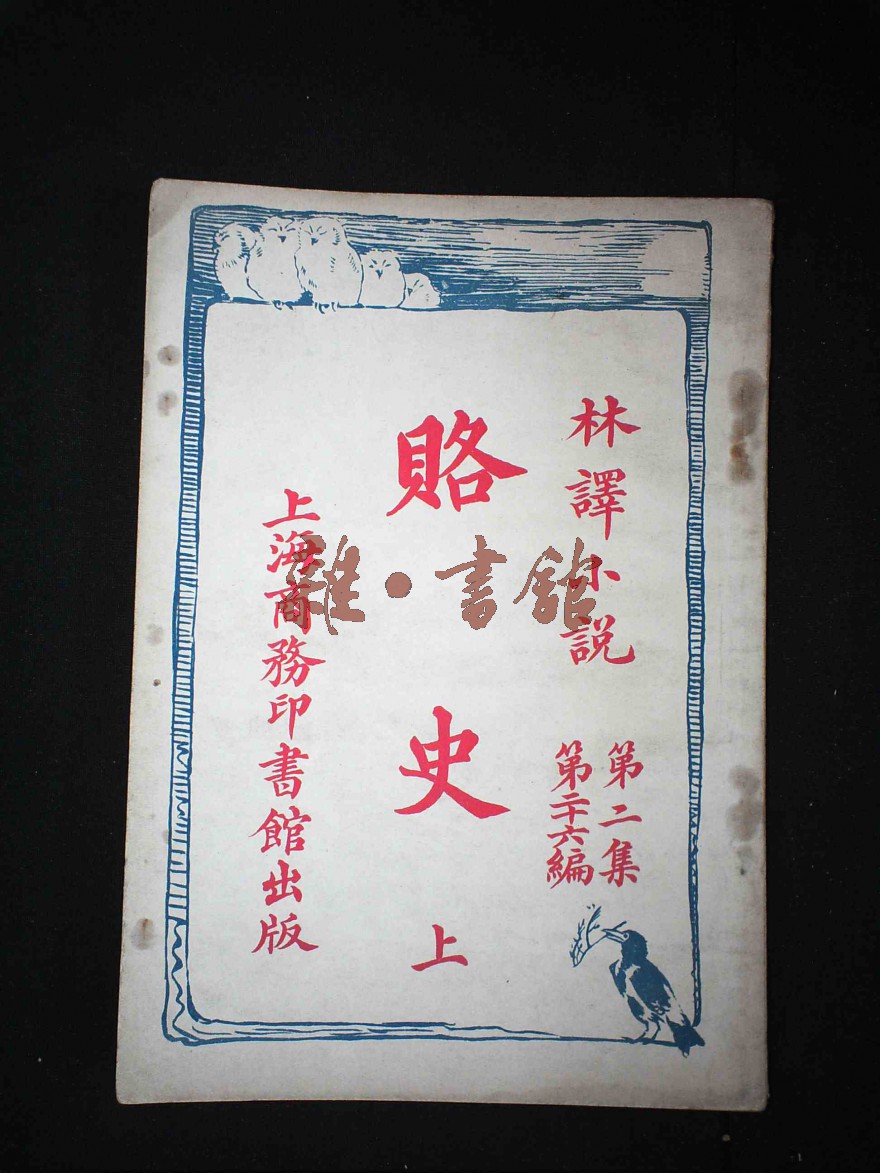 林譯小説
第二集
第二十六編
賂史
上
上海商務印書館出版
雜·書館